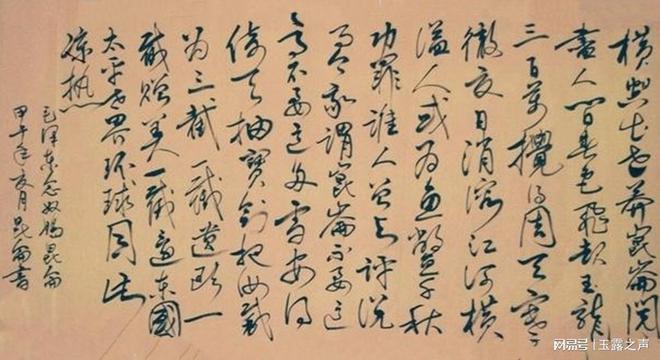 横空出世莽崑崙阅
盡人间春色飛起玉龍
三百萬攪得周天寒
徹夏日消溶江河横
溢人或为鱼鳖千秋
功罪谁人曾与評说
而今我謂崑崙不要这
高不要这多雪安得
倚天抽寶剑把汝裁
为三截一截遗欧一
截赠美一截还东國
太平世界环球同此
凉热
毛泽东念奴娇昆仑
甲午年夏月昆仑书
搜狐号@玉露之声